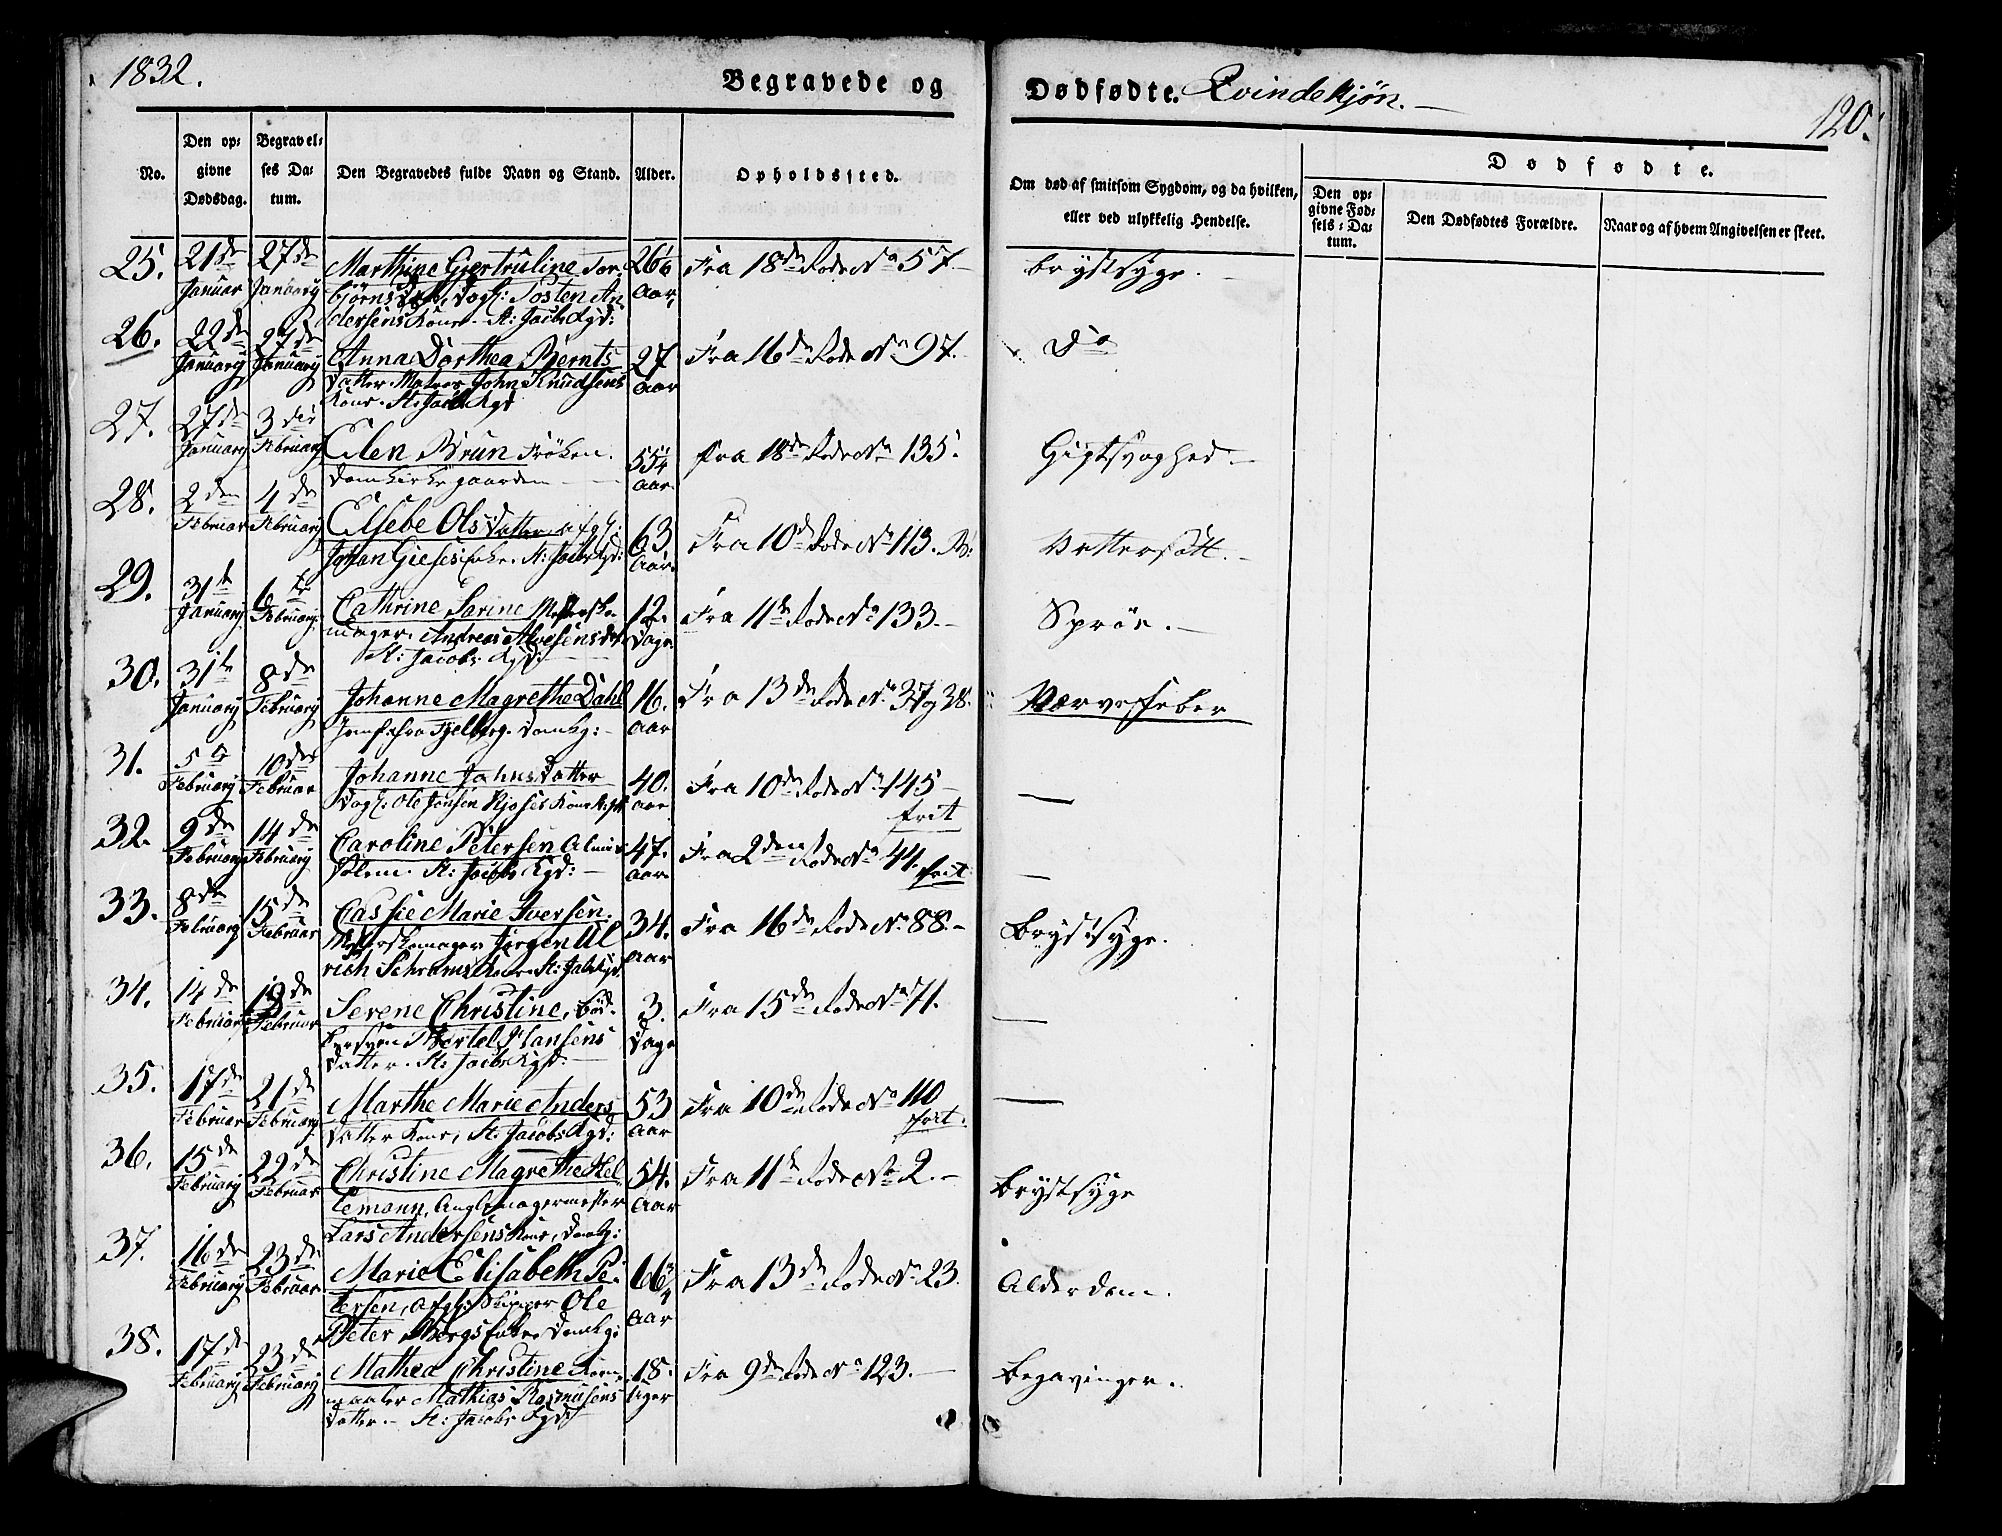 1832.
Begravede og
Dødfødte. Qvindekjøn.
120.
No.
Den opgivne Dødsdag.
Begravelses Datum.
Den Begravedes fulde Navn og Stand.
Alder.
Opholdssted.
Om død af smitsom Sygdom, og da hvilken,
eller ved ulykkelig Hendelse.
Dødfødte.
Den opgivne Fødsels-Datum.
Den Dødfødtes Forældre.
Naar og af hvem Angivelsen er skeet.
25. 21de Januar 27de Januarij Marthine Giertruline Tor-
biørnsdatt, Dagl: Tosten An-
dersens Kone. St: Jacobs Kgd:
26 Aar Fra 18de Rode No 57. Brystsyge.
26. 22de Januarij 27de Januarij Anna Dorthea Bernts
datter Matros John Knudsens
Kone. St: Jacobs Kgd
27 Aar Fra 16de Rode No 97. Do
27. 27de Januarij 3die Februarij Elen Brun Frøken.
Domkirkegaarden
55 Aar fra 18de Rode No 135. Gigtsvaghed.
28. 2den Februar 4de Februarij Elsebe Olsdatter, afg:
Johan Gieses Enke. St: Jacobs Kgd:
63 Aar Fra 10de Rode No 113. Vattersot.
29. 31te Januarij 6te Februarij Cathrine Sarine
mager Andreas Alvesens dtr
St: Jacobs Kgd:
12. Dage Fra 11te Rode No 133. Sprøe.
30. 31te Januarij 8de Februarij Johanne Magrethe Dahl
Jomf. fra Fjelberg. Domkg:
16. Aar Fra 13de Rode No 37 og 38. Nervefeber
31. 5te Februarij 10de Februar Johanne Johnsdatter
Dagl. Ole Jansen Kjoses Kone
40. Aar Fra 10de Rode No 145 frit —
32. 9de Februarij 14de Februarij Caroline Petersen Almis
Solem. St: Jacobs Kgd:
47. Aar Fra 2den Rode No 44. frit —
33. 8de Februarij 15de Februar Cassie Marie Iversen.
Jørgen Ul
rich Schrams Kone. St: Jacobs Kgd.
34. Aar Fra 16de Rode No 88. Brystsyge.
34. 14de Februar 18de Februar Serene Christine, Bød-
kersvend Bertel Hansens
Datter. St: Jacobs Kgd:
3. Dage Fra 15de Rode No 71. —
35. 17de Februar 21de Februarij Marthe Marie Anders
datter Kone, St: Jacobs Kgd:
53 Aar Fra 10de Rode No 110 frit. —
36. 15de Februarij 22de Februar Christine Magrethe Hel
lemann,
Lars Andersens Kone, Domkg:
54. Aar Fra 11te Rode No 2. Brystsyge
37. 16de Februarij 23de Februar Marie Elisabeth Pe-
tersen, afgl: Skipper Ole
Peter Bergs Enke. Domkg:
66 Aar Fra 13de Rode No 23. Alderdom.
38. 17de Februarij 23de Februarij Mathea Christine Korn
maaler Mathias Rasmusens
Datter. St: Jacobs Kgd
18. Uger Fra 9de Rode No 123. Begavinger.